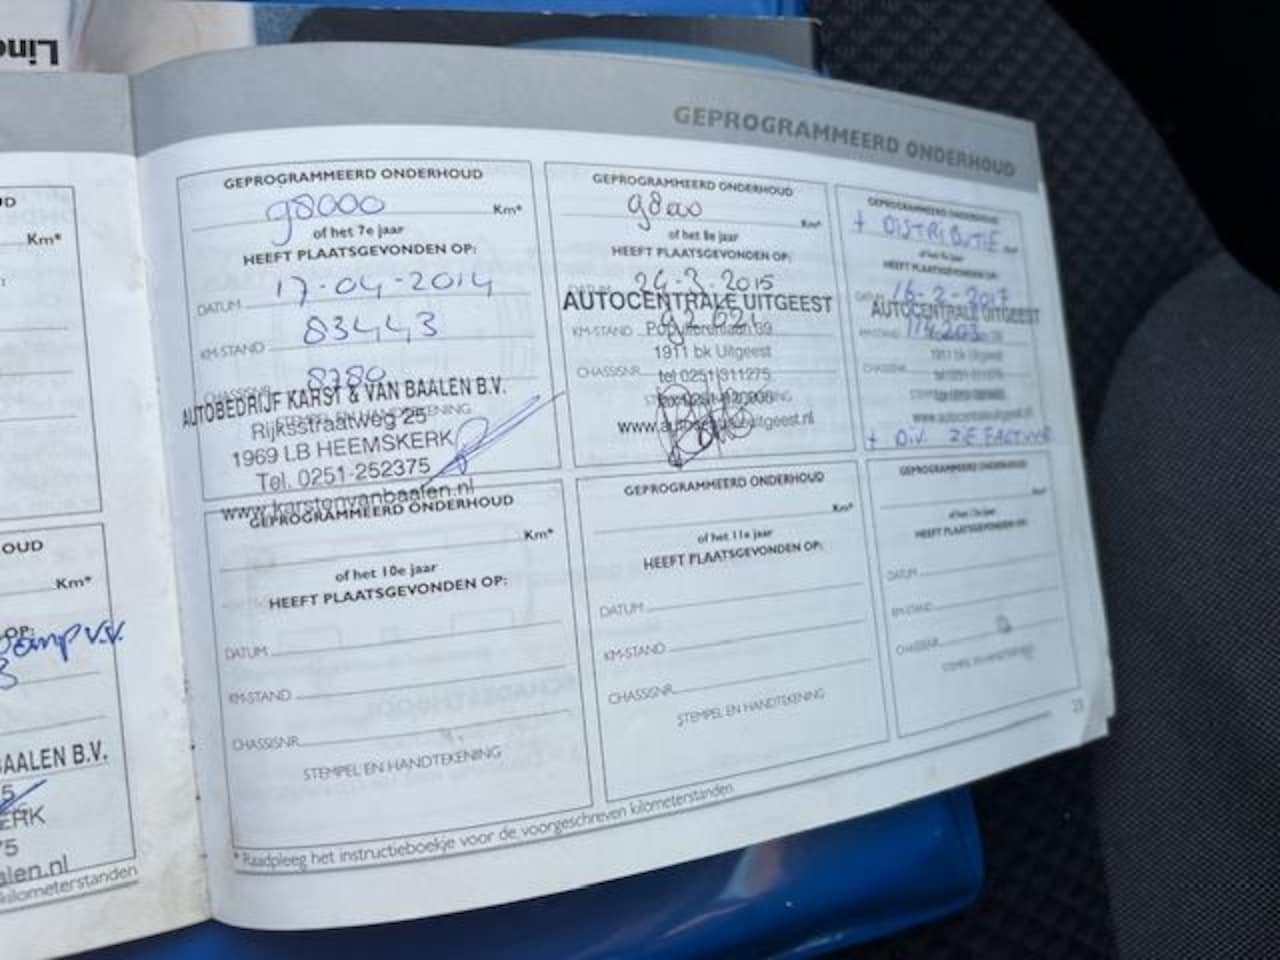 Linea
GEPROGRAMMEERD ONDERHOUD
GEPROGRAMMEERD ONDERHOUD
98000 Km*
of het 7e jaar
HEEFT PLAATSGEVONDEN OP:
DATUM 17-04-2014
KM-STAND 83443
CHASSISNR. 8780
AUTOBEDRIJF KARST & VAN BAALEN B.V.
STEMPEL EN HANDTEKENING
Rijksstraatweg 25
1969 LB HEEMSKERK
Tel. 0251-252375
www.karstenvanbaalen.nl
GEPROGRAMMEERD ONDERHOUD
98000 Km*
of het 8e jaar
HEEFT PLAATSGEVONDEN OP:
DATUM 24-3-2015
AUTOCENTRALE UITGEEST
KM-STAND
1911 bk Uitgeest
CHASSISNR.
tel 0251-311275
www.autocentraleuitgeest.nl
GEPROGRAMMEERD ONDERHOUD
+ DISTRIBUTIE Km*
of het 9e jaar
HEEFT PLAATSGEVONDEN OP:
DATUM 16-2-2017
AUTOCENTRALE UITGEEST
KM-STAND
1911 bk Uitgeest
CHASSISNR.
tel 0251-311275
www.autocentraleuitgeest.nl
+ DIV. ZE FACTUUR
GEPROGRAMMEERD ONDERHOUD
Km*
of het 10e jaar
HEEFT PLAATSGEVONDEN OP:
DATUM
KM-STAND
CHASSISNR.
STEMPEL EN HANDTEKENING
GEPROGRAMMEERD ONDERHOUD
Km*
of het 11e jaar
HEEFT PLAATSGEVONDEN OP:
DATUM
KM-STAND
CHASSISNR.
STEMPEL EN HANDTEKENING
GEPROGRAMMEERD ONDERHOUD
Km*
of het 12e jaar
HEEFT PLAATSGEVONDEN OP:
DATUM
KM-STAND
CHASSISNR.
STEMPEL EN HANDTEKENING
* Raadpleeg het instructieboekje voor de voorgeschreven kilometerstanden
Km*
OUD
Km*
OP:
v.v.
3
BAALEN B.V.
5
ERK
75
alen.nl
kilometerstanden